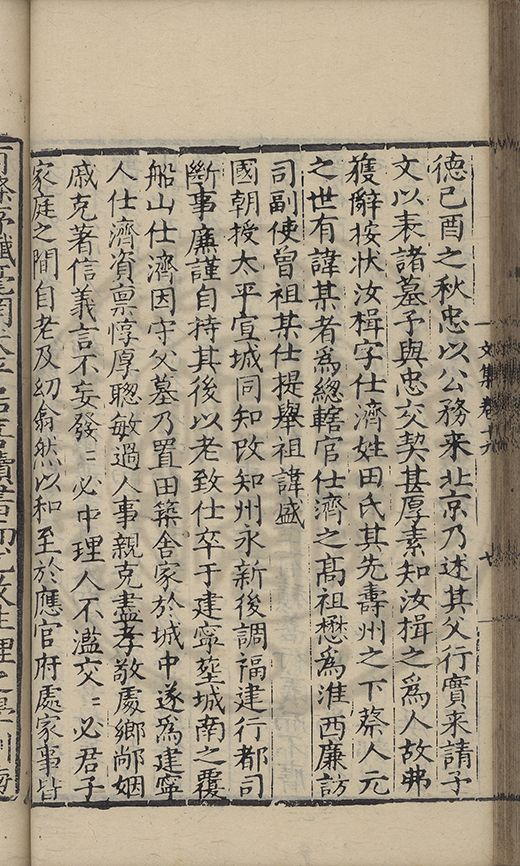 文集卷十九
七
德己酉之秋忠以公務来北京乃述其父行實来請予
文以表諸墓子與忠交契甚厚素知汝揖之為人故弗
獲辭按狀汝楫字仕濟姓田氏其先壽州之下蔡人元
之世有諱某者為緫轄官仕濟之髙祖懋為淮西廉訪
司副使曾祖某仕提舉祖諱盛
國朝授太平宣城同知改知州永新後調福建行都司
斷事廉謹自持其後以老致仕卒于建寧塟城南之覆
船山仕濟因守父墓乃置田築舎家於城中遂為建寧
人仕濟資禀惇厚聰敏過人事親克盡孝敬處鄉鄰姻
戚克著信義言不妄發：必中理人不濫交：必君子
家庭之間自老及幼翕然以和至於應官府處家事皆